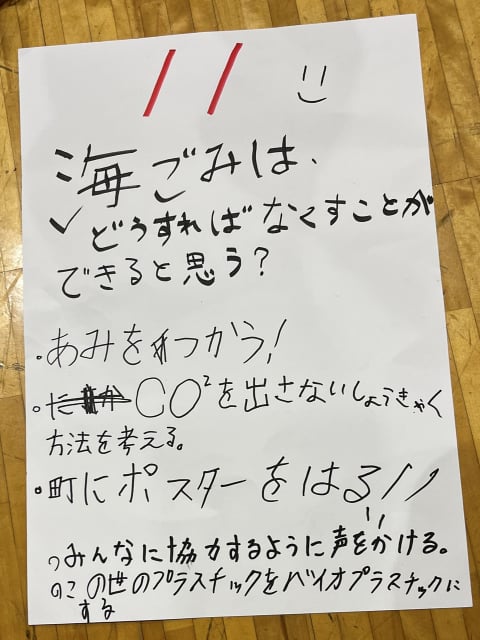 11
海ごみは、
どうすればなくすことが
できると思う?
・あみをつかう!
・CO²を出さないしょうきゃく
方法を考える。
・町にポスターをはる!!
みんなに協力するように声をかける。
この世のプラスチックをバイオプラスチックに
する